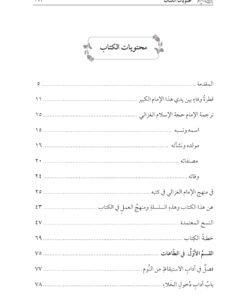 محتويات الكتاب
محتويات الكتاب
المقدمة ٥
قطرة وفاء بين يدي هذا الإمام الكبير ١١
ترجمة الإمام حجة الإسلام الغزالي ١٥
اسمه ونسبه ١٥
مولده ونشأته ١٦
مصنفاته ٢٠
وفاته ٢٤
في منهج الإمام الغزالي في كتبه ٢٥
عن هذا الكتاب وهذه السلسلة ومنهج العمل في الكتاب ٤٣
النسخ المعتمدة ٤٧
خطبة الكتاب ٦٩
القسم الأول: في الطاعات ٧٥
فصل في آداب الاستيقاظ من النوم ٧٧
باب آداب دخول الخلاء ٧٨